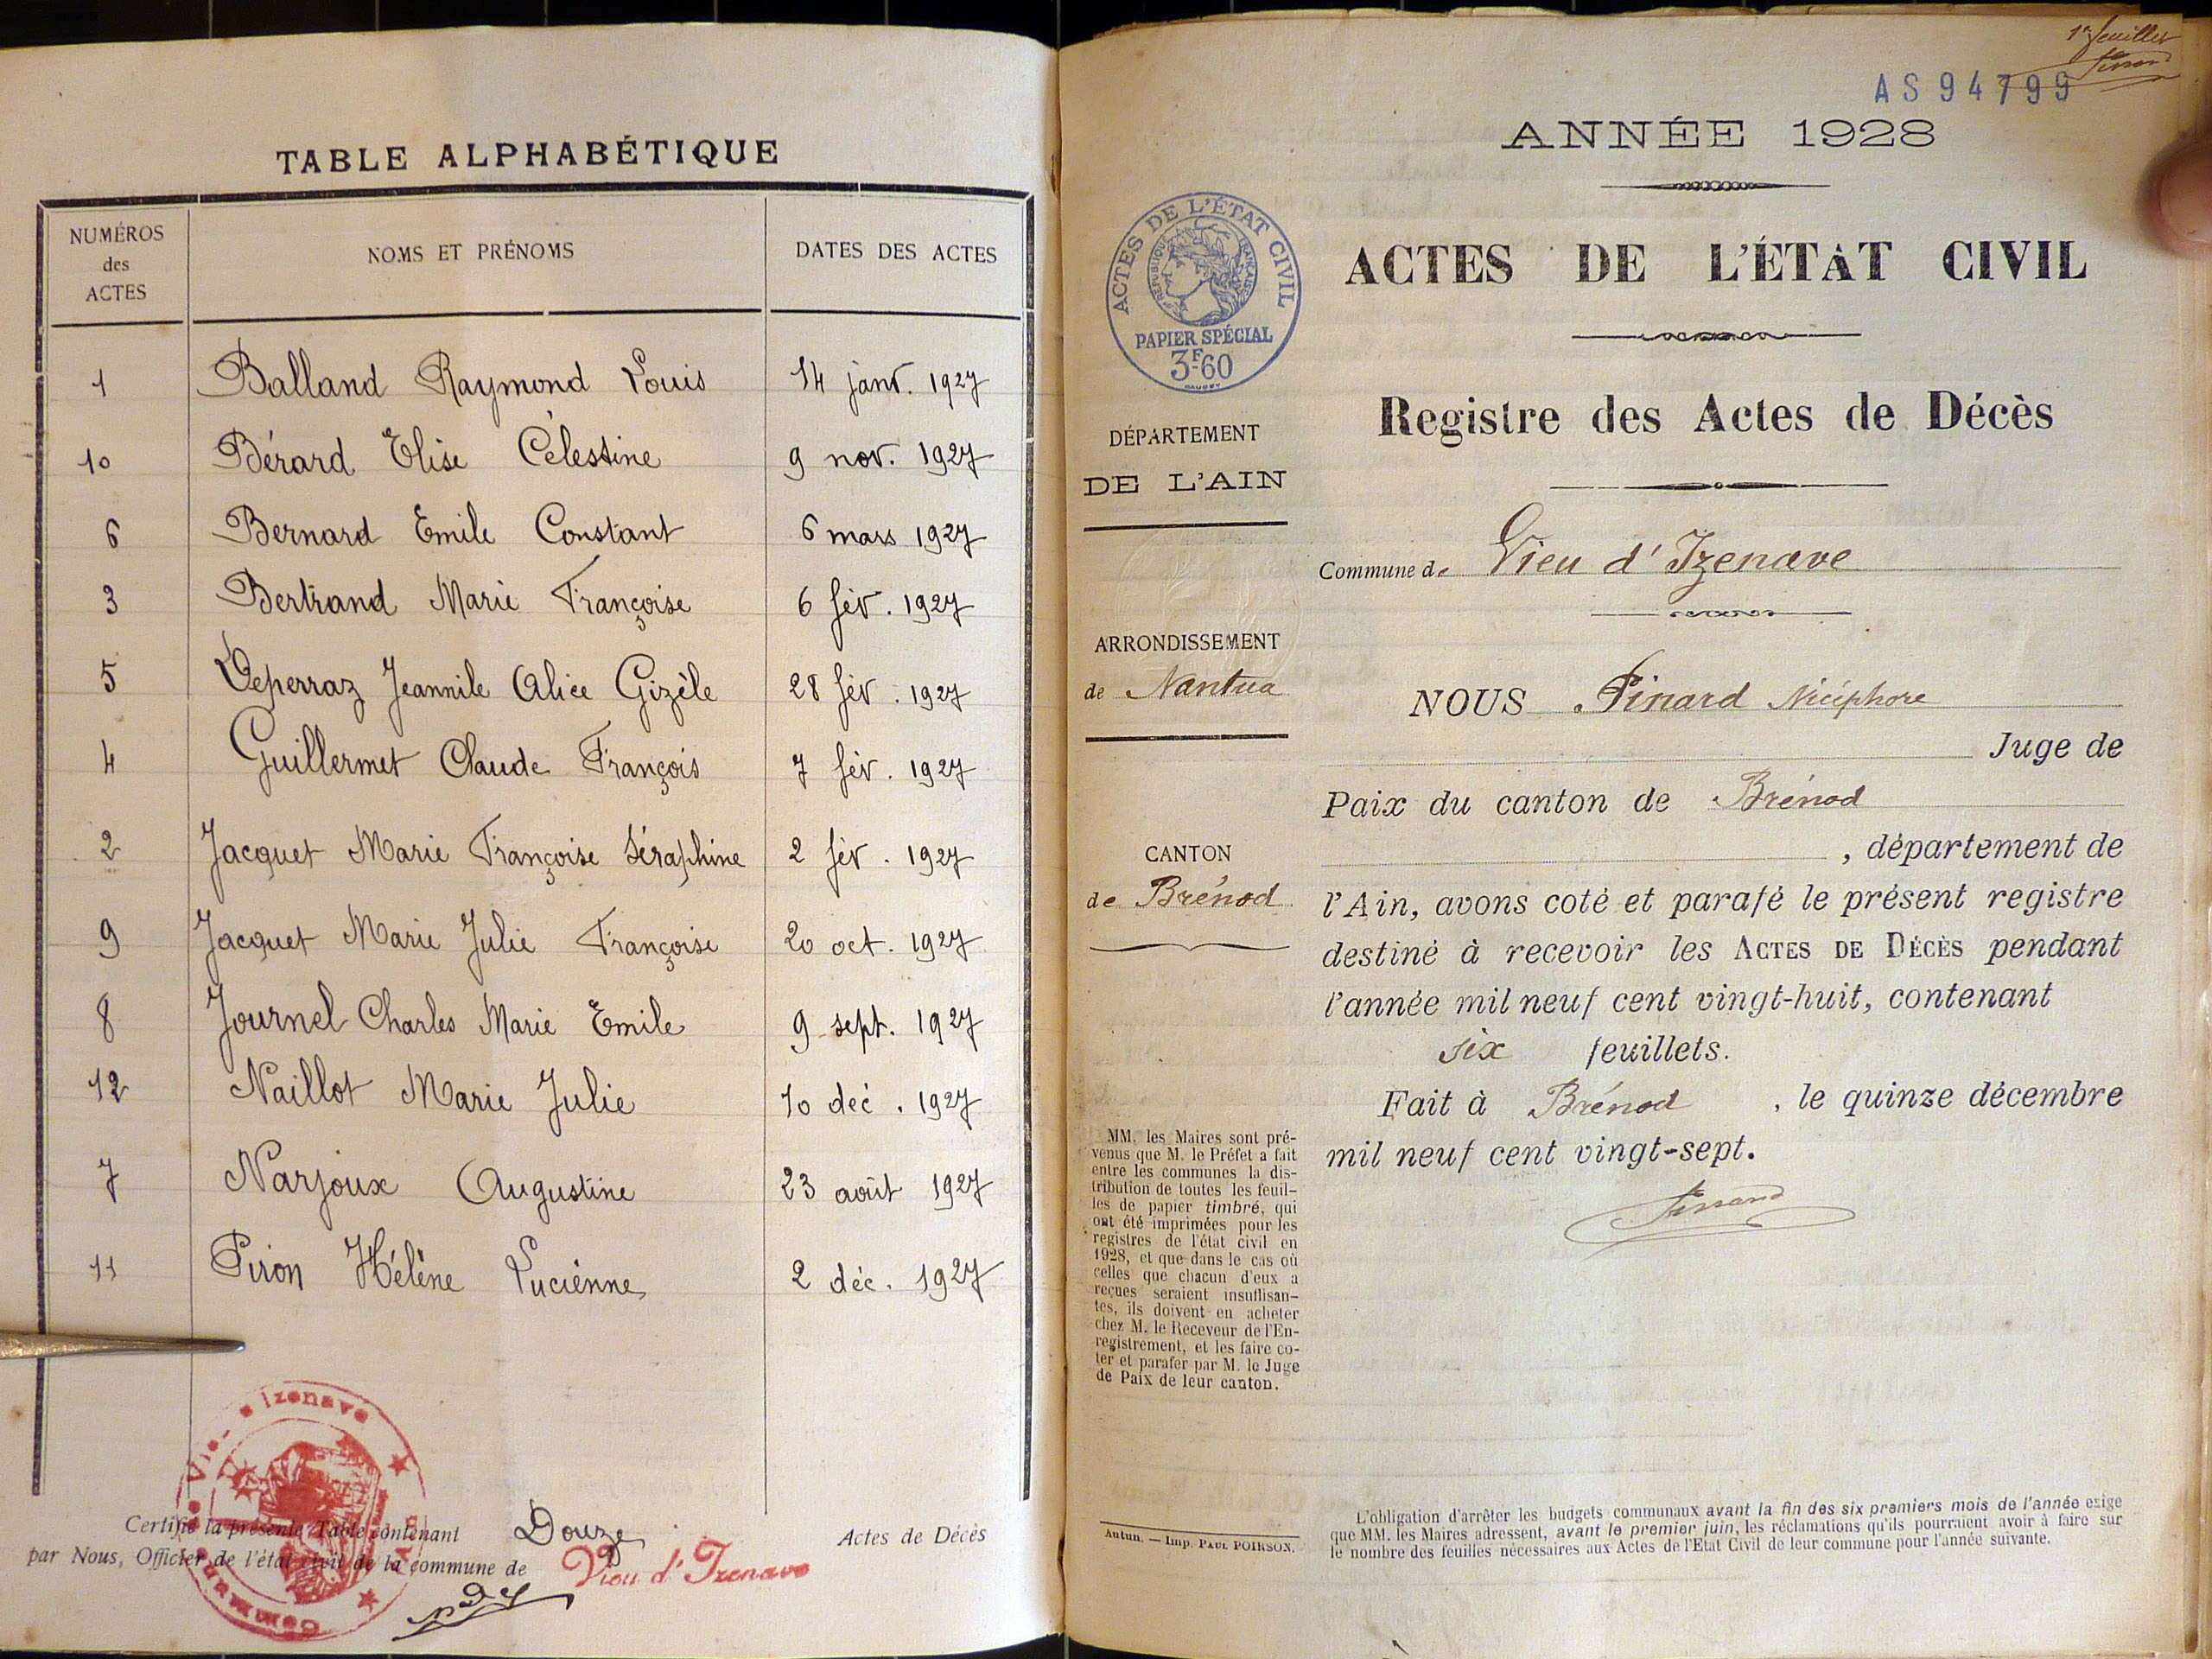 TABLE ALPHABÉTIQUE
NUMÉROS des ACTES NOMS ET PRÉNOMS DATES DES ACTES
1 Balland Raymond Louis 14 janv. 1927
10 Bérard Elise Célestine 9 nov. 1927
6 Bernard Emile Constant 6 mars 1927
3 Bertrand Marie Françoise 6 fév. 1927
5 Deperraz Jeannile Alice Gizèle 28 fév. 1927
4 Guillermet Claude François 7 fév. 1927
2 Jacquet Marie Françoise Séraphine 2 fév. 1927
9 Jacquet Marie Julie Françoise 20 oct. 1927
8 Journel Charles Marie Emile 9 sept. 1927
12 Naillot Marie Julie 10 déc. 1927
7 Narjoux Augustine 23 août 1927
11 Piron Hélène Lucienne 2 déc. 1927
Certifié la présente Table contenant Douze Actes de Décès
par Nous, Officier de l'état civil de la commune de Vieu d'Izenave
1er feuillet
AS 94799
ANNÉE 1928
ACTES DE L'ÉTAT CIVIL
Registre des Actes de Décès
ACTES DE L'ÉTAT CIVIL
RÉPUBLIQUE FRANÇAISE
PAPIER SPÉCIAL
3F60
DÉPARTEMENT
DE L'AIN
ARRONDISSEMENT
de Nantua
CANTON
de Brénod
MM. les Maires sont pré-
venus que M. le Préfet a fait
entre les communes la dis-
tribution de toutes les feuil-
les de papier timbré, qui
ont été imprimées pour les
registres de l'état civil en
1928, et que dans le cas où
celles que chacun d'eux a
reçues seraient insuffisan-
tes, ils doivent en acheter
chez M. le Receveur de l'En-
registrement, et les faire co-
ter et parafer par M. le Juge
de Paix de leur canton.
Autun. — Imp. PAUL POIRSON.
Commune de Vieu d'Izenave
NOUS Pinard Nicéphore
Juge de
Paix du canton de Brénod
, département de
l'Ain, avons coté et parafé le présent registre
destiné à recevoir les ACTES DE DÉCÈS pendant
l'année mil neuf cent vingt-huit, contenant
six feuillets.
Fait à Brénod, le quinze décembre
mil neuf cent vingt-sept.
L'obligation d'arrêter les budgets communaux avant la fin des six premiers mois de l'année exige
que MM. les Maires adressent, avant le premier juin, les réclamations qu'ils pourraient avoir à faire sur
le nombre des feuilles nécessaires aux Actes de l'Etat Civil de leur commune pour l'année suivante.